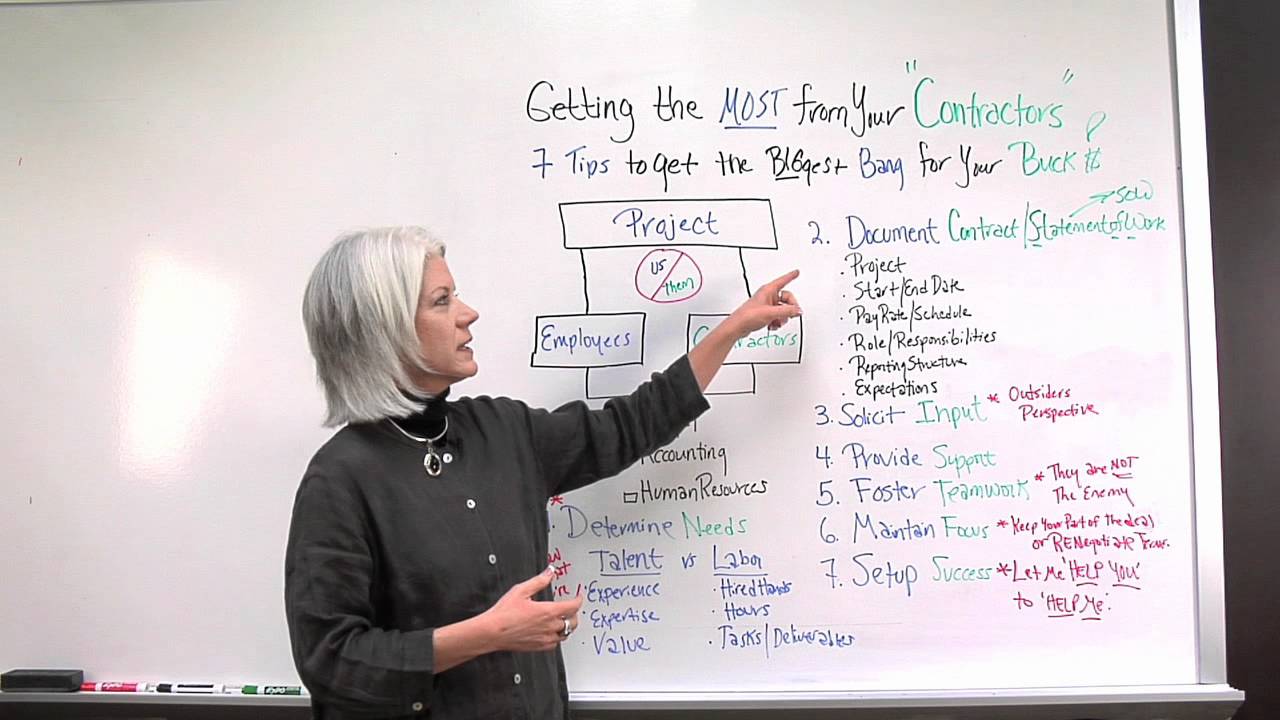 Getting the MOST from Your "Contractors"
7 Tips to get the BIGgest Bang for Your Buck $
Project
us
them
Employees
Contractors
Accounting
Human Resources
Determine Needs
Talent vs Labor
Experience
Expertise
Value
· Hired Hands
· Hours
· Tasks/Deliverables
2. Document Contract/Statement of Work
SOW
· Project
· Start/End Date
· Pay Rate/Schedule
· Role/Responsibilities
· Reporting Structure
· Expectations
3. Solicit Input * Outsiders
Perspective
4. Provide Support
5. Foster Teamwork * They are NOT
The Enemy
6. Maintain Focus * Keep Your Part of The deal
or RENegotiate Terms.
7. Setup Success * Let Me 'HELP YOU'
to 'HELP Me'.
EXPO